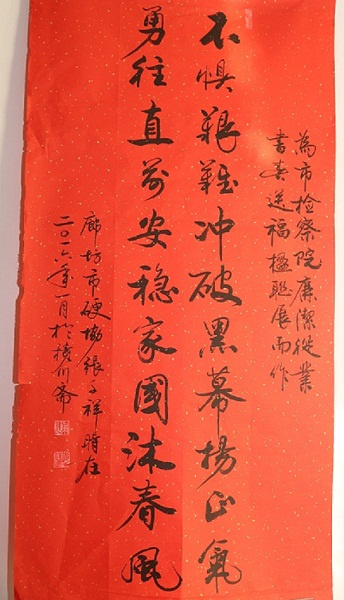 為市检察院廉潔從業
書春送福楹聯展而作
不惧艰難冲破黑幕揚正氣
勇往直前安稳家國沐春風
廊坊市硬協張子祥時在
二〇一六年一月於